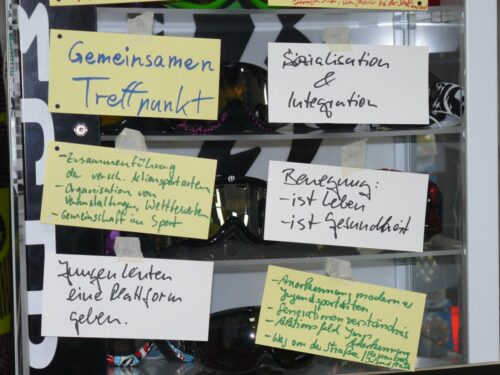 Gemeinsamen
Treffpunkt
Sozialisation
&
Integration
- Zusammenführung
der versch. Aktionsportarten
- Organisation von
Veranstaltungen, Wettbewerben
- Gemeinschaft im Sport
Bewegung:
- ist Leben
- ist Gesundheit
Jungen Leuten
eine Plattform
geben.
- Anerkennung moderner
Jugendsportarten
- Generationenverständnis
- Aktions feld Jugend
Anerkennung
- Weg von der Straße